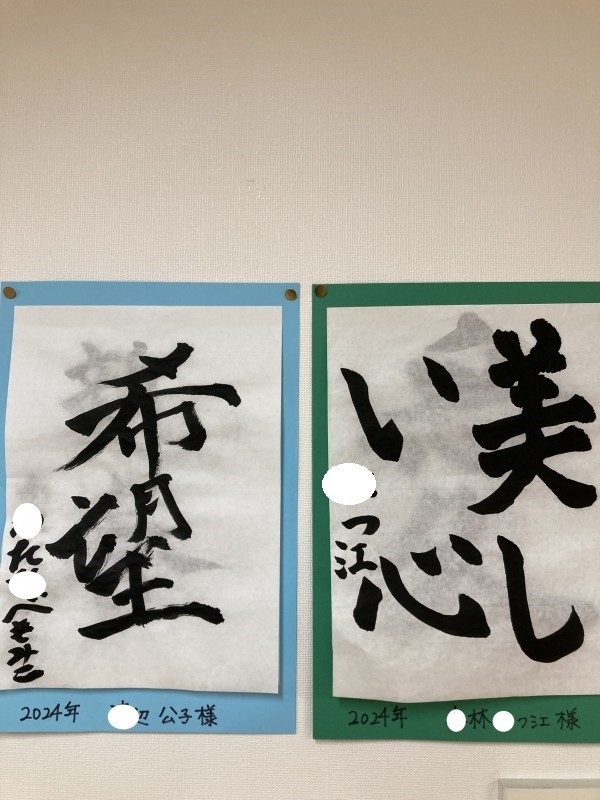 希望
2024年 辺 公子様
美し
い心
つ江
2024年 林 つ江様